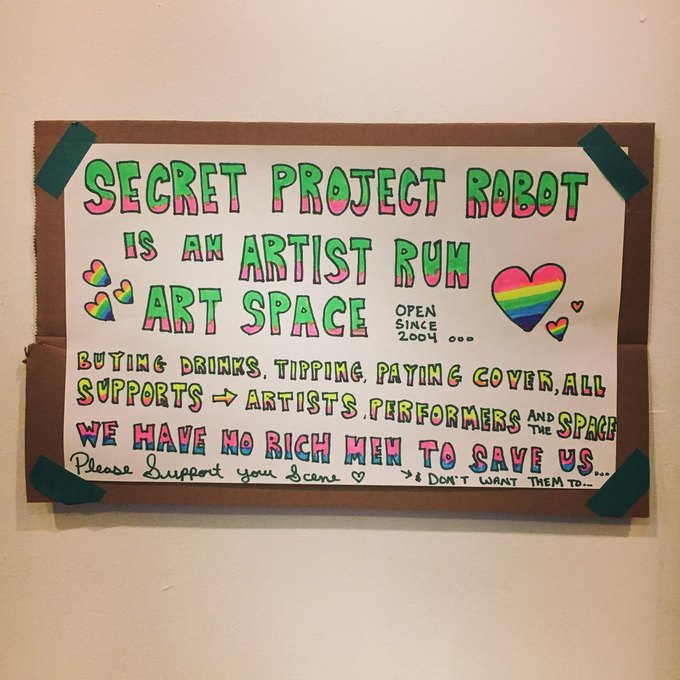 SECRET PROJECT ROBOT
IS AN ARTIST RUN
ART SPACE OPEN SINCE 2004 ...
BUYING DRINKS, TIPPING, PAYING COVER, ALL
SUPPORTS → ARTISTS, PERFORMERS AND THE SPACE
WE HAVE NO RICH MEN TO SAVE US...
Please Support your Scene ♡ → & DON'T WANT THEM TO...